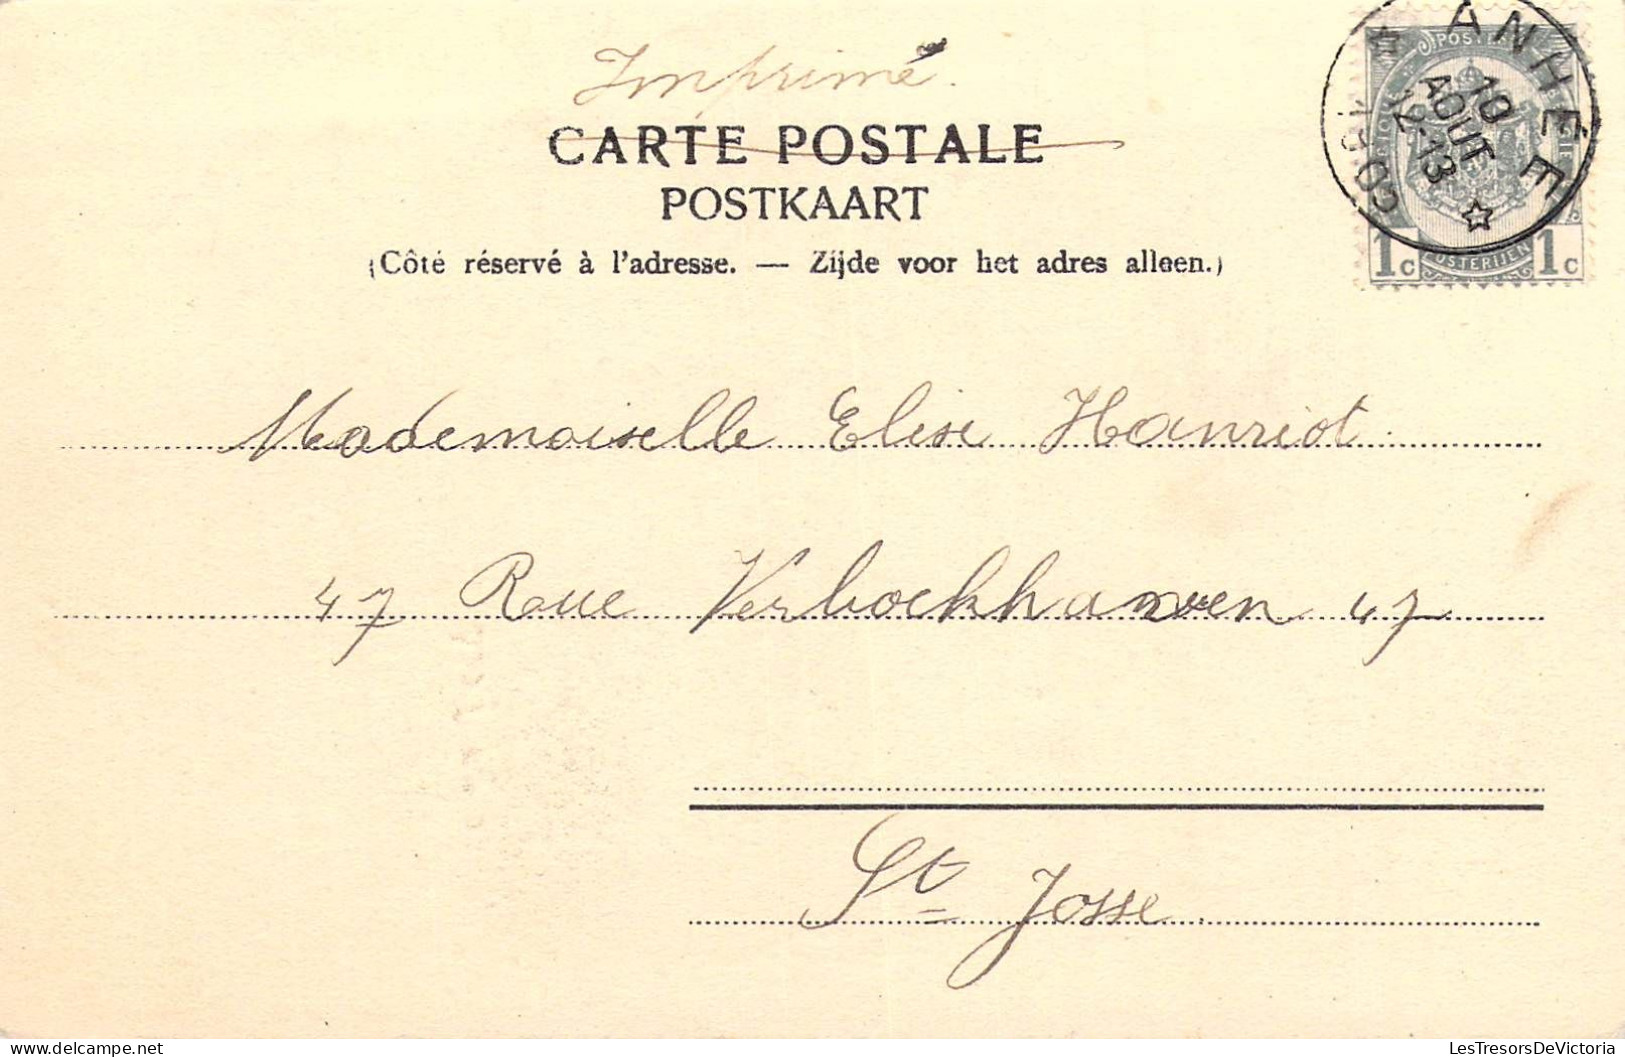 Imprimé.
CARTE POSTALE
POSTKAART
(Côté réservé à l'adresse. — Zijde voor het adres alleen.)
ANHÉE
10
AOUT
12-13
POSTERIJEN
1c 1c
Mademoiselle Elise Hanriot
47 Rue Verboekhaven 47
St Josse
LesTresorsDeVictoria